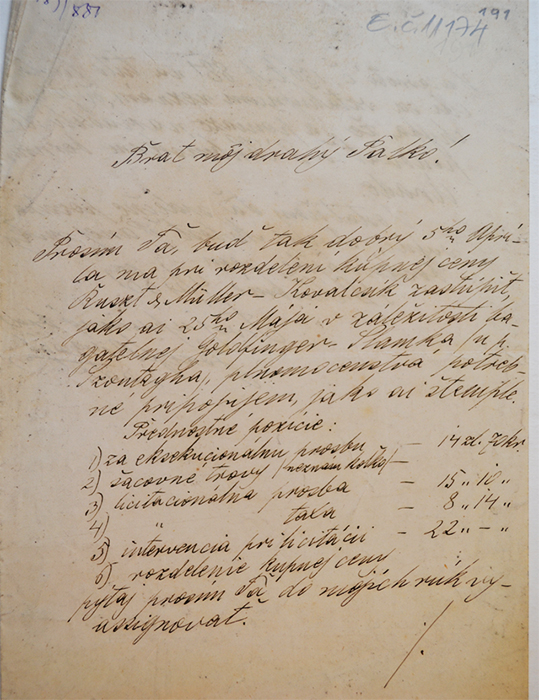 191
E. č. 11174
Brat môj drahý Palko!
Prosím Ťa, buď tak dobrý 5ho Aprí-
la ma pri rozdelení kúpnej ceny
Ruszt & Müller – Kovalcsik zastúpiť,
jako ai 25ho Mája v záležitosti ba-
gatelnej Goldfinger Slamka /u p.
Szontagha/, plnomocenstvá potreb-
né pripojijem, jako ai štemple.
Přednostné pozície:
1) za eksekucionálnu prosbu – 14 zl. 7 kr
2) šacovné trovy /neznám kolko/ –
3) licitacionálna prosba – 15 „ 10 „
4) „ taxa – 8 „ 14 „
5) intervencia pri licitácii – 22 „ – „
6) rozdelenie kúpnej ceny
pýtaj prosím Ťa do mojich rúk vy-
assignovať.
./.